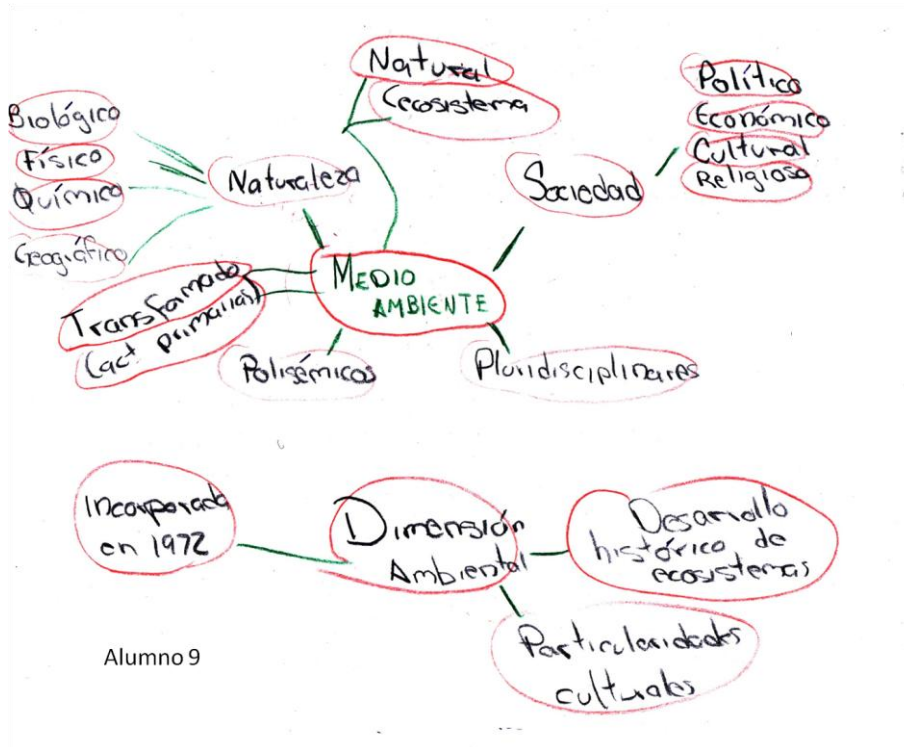 Natural
(ecosistema
Político
Económico
Cultural
Religioso
Biológico
Físico
Químico
Geográfico
Naturaleza
Sociedad
MEDIO
AMBIENTE
Transformado
(act. primarias)
Polisémicos
Pluridisciplinares
Incorporada
en 1972
Dimensión
Ambiental
Desarrollo
histórico de
ecosistemas
Particularidades
culturales
Alumno 9